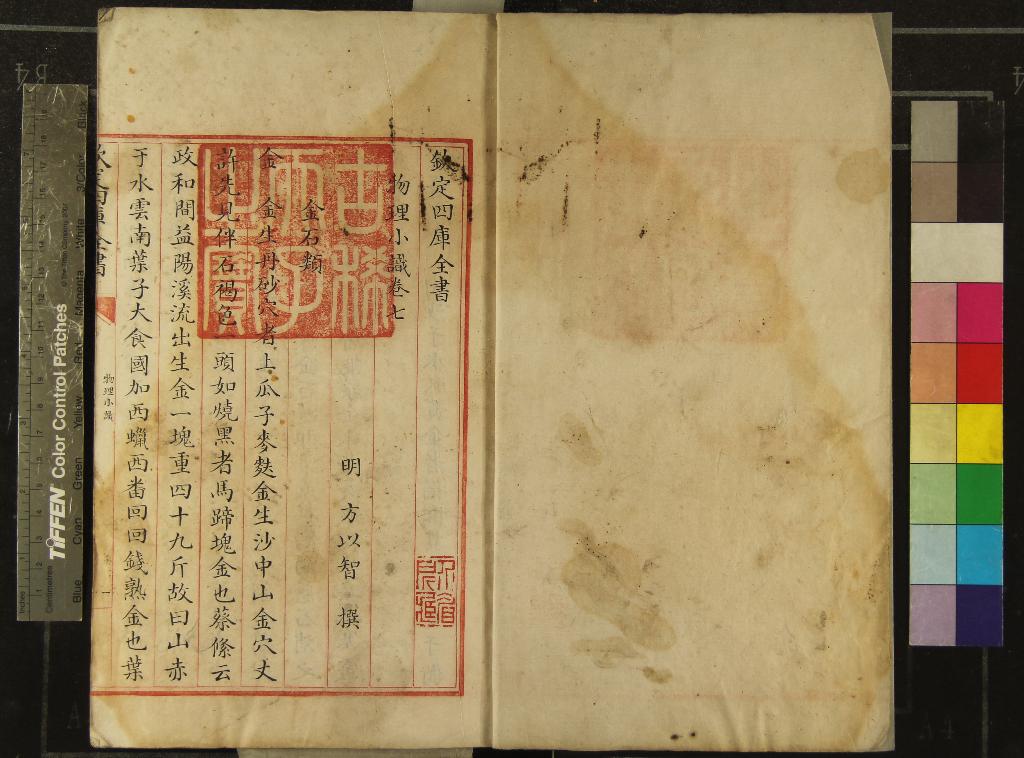 欽定四庫全書
物理小識卷七
明 方以智 撰
金石類
金 金生丹砂穴者上瓜子麥麩金生沙中山金穴丈
許先見伴石褐色一頭如燒黑者馬蹄塊金也蔡絛云
政和間益陽溪流出生金一塊重四十九斤故曰山赤
于水雲南葉子大食國加西蠟西畨回回錢熟金也葉
物理小識
一
古稀天子之寶
TIFFEN Color Control Patches
Blue Cyan Green Yellow Red Magenta White 3/Color Black
Inches
Centimetres